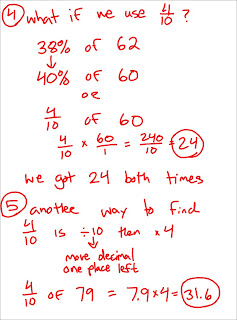 ④ what if we use 4/10 ?
38% of 62
↓
40% of 60
or
4/10 of 60
4/10 × 60/1 = 240/10 = 24
we got 24 both times
⑤ another way to find
4/10 is ÷10 then ×4
↓
move decimal
one place left
4/10 of 79 = 7.9×4 = 31.6